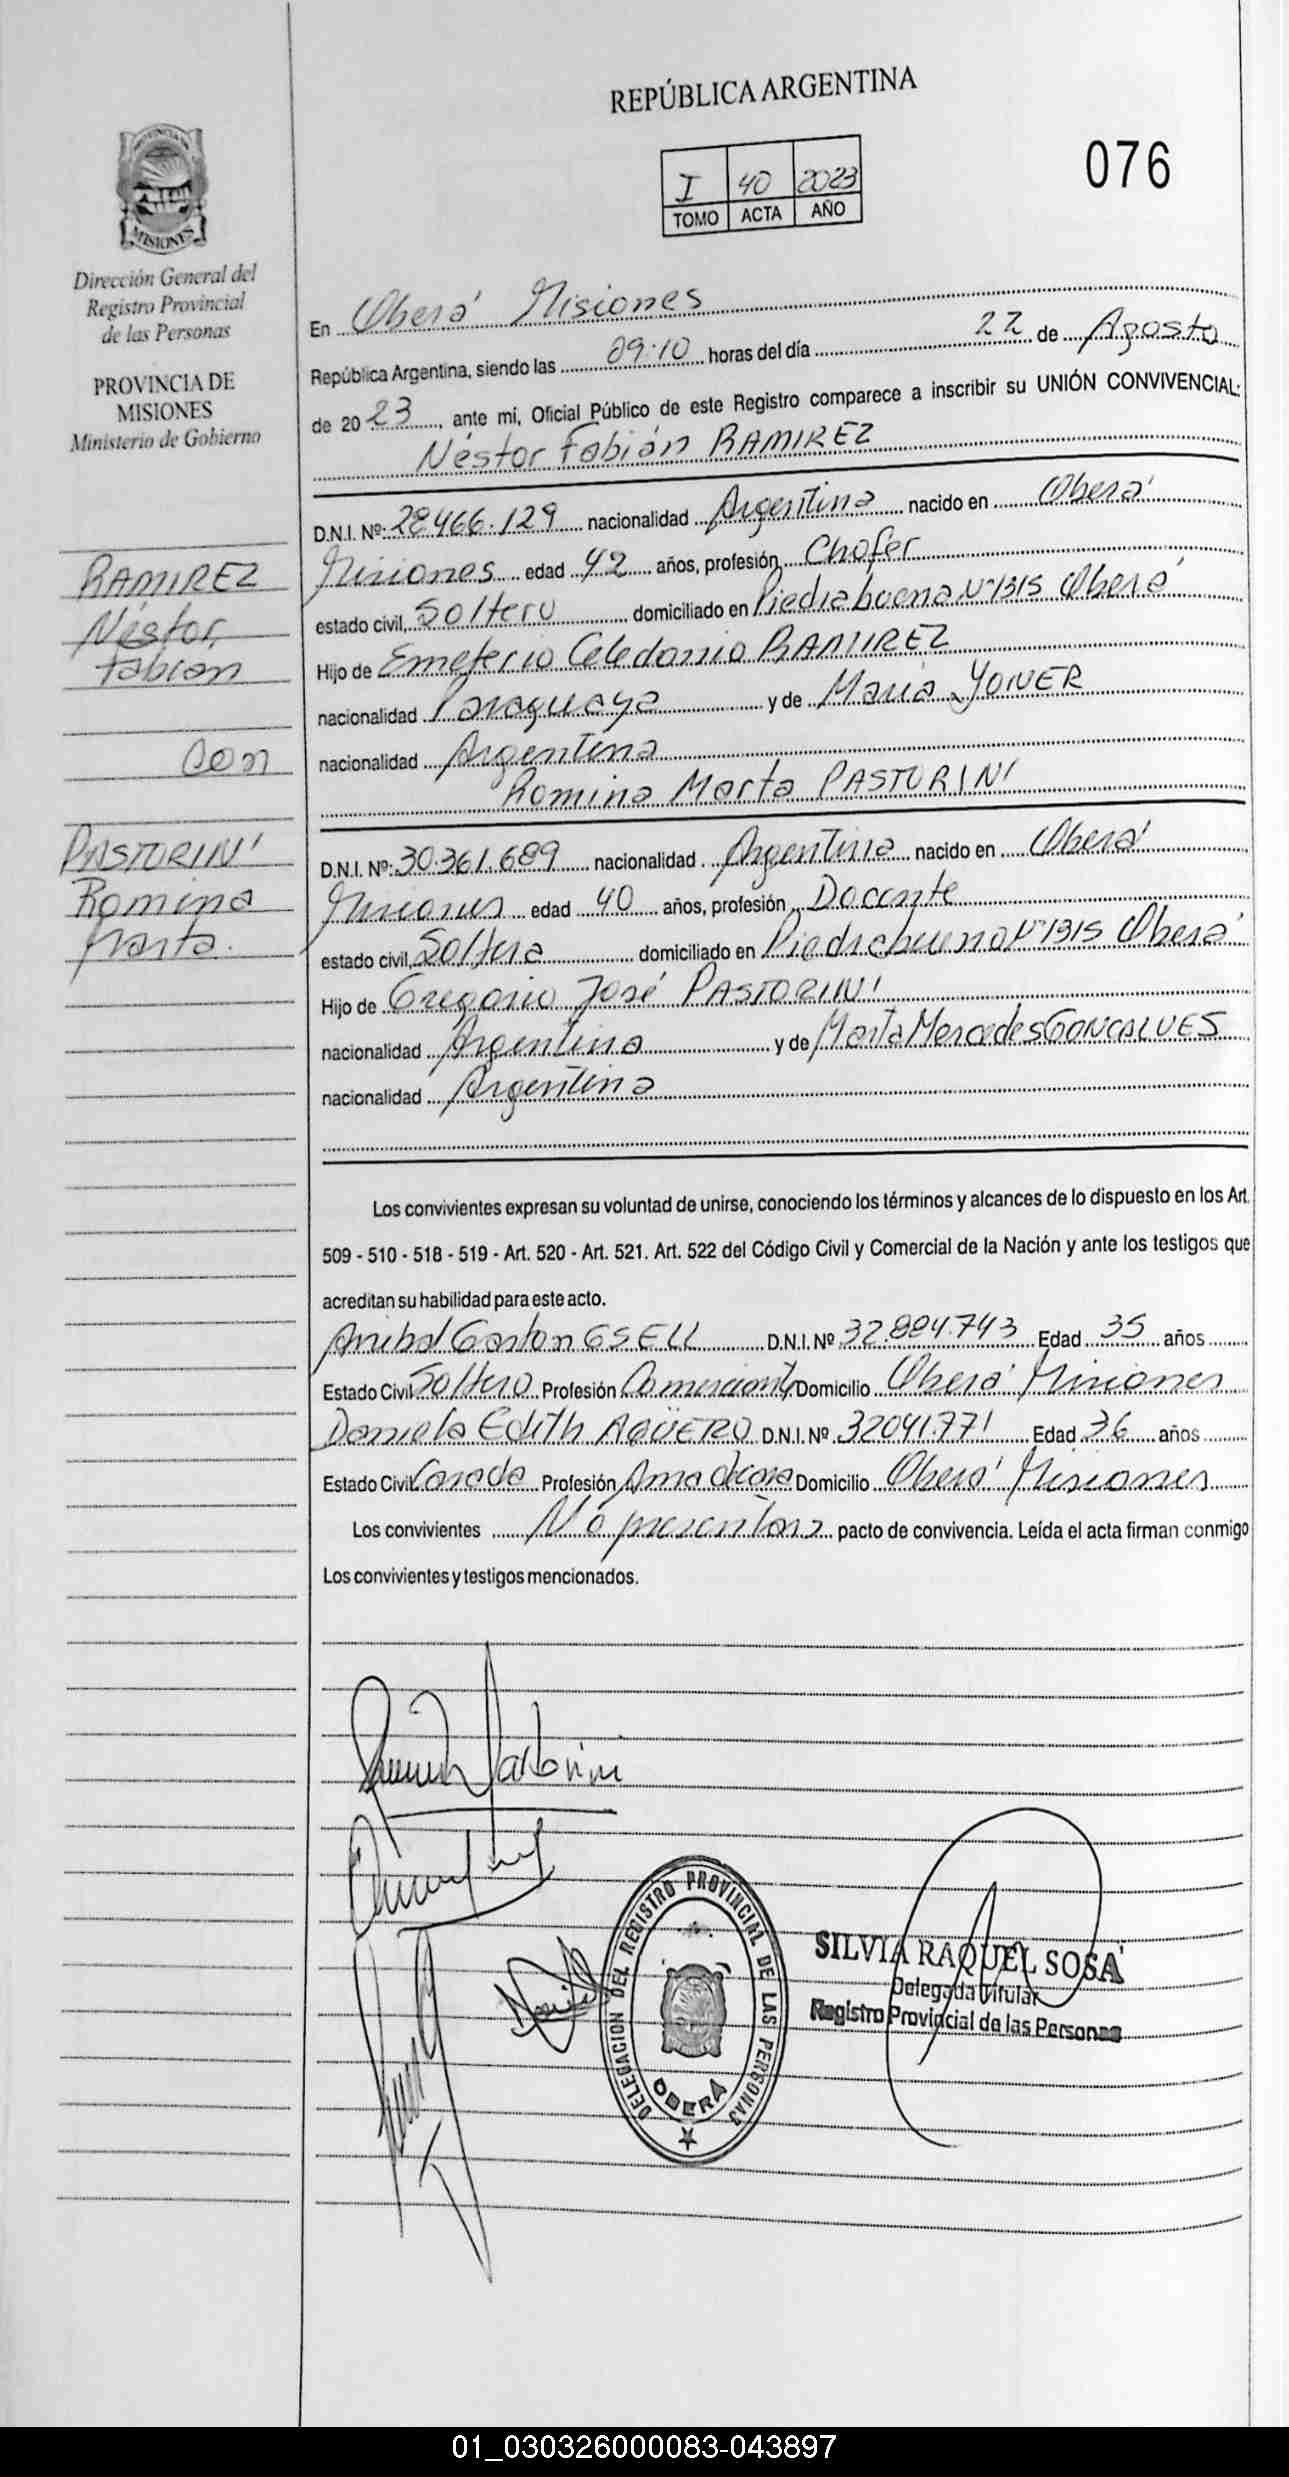 REPÚBLICA ARGENTINA
076
I 40 2023
TOMO ACTA AÑO
PROVINCIA DE
MISIONES
Dirección General del
Registro Provincial
de las Personas
PROVINCIA DE
MISIONES
Ministerio de Gobierno
RAMIREZ
Néstor,
Fabián
con
PASTORINI
Romina
Marta.
En Oberá Misiones
República Argentina, siendo las 09:10 horas del día 22 de Agosto
de 2023, ante mi, Oficial Público de este Registro comparece a inscribir su UNIÓN CONVIVENCIAL:
Néstor Fabián RAMIREZ
D.N.I. Nº 28.466.129 nacionalidad Argentina nacido en Oberá
Misiones edad 42 años, profesión Chofer
estado civil, Soltero domiciliado en Piedrabuena Nº 1315 Oberá
Hijo de Emeterio Celedonio RAMIREZ
nacionalidad Paraguaya y de María
nacionalidad Argentina
Romina Marta PASTORINI
D.N.I. Nº 30.361.689 nacionalidad Argentina nacido en Oberá
Misiones edad 40 años, profesión Docente
estado civil, Soltera domiciliado en Piedrabuena Nº 1315 Oberá
Hijo de Gregorio José PASTORINI
nacionalidad Argentina y de Marta Mercedes GONCALVES
nacionalidad Argentina
Los convivientes expresan su voluntad de unirse, conociendo los términos y alcances de lo dispuesto en los Art.
509 - 510 - 518 - 519 - Art. 520 - Art. 521. Art. 522 del Código Civil y Comercial de la Nación y ante los testigos que
acreditan su habilidad para este acto.
Anibal Gaston GSELL D.N.I. Nº 32.894.743 Edad 35 años
Estado Civil Soltero Profesión Comerciante Domicilio Oberá Misiones
Daniela Edith AGÜERO D.N.I. Nº 32041.771 Edad 36 años
Estado Civil Casada Profesión Ama de casa Domicilio Oberá Misiones
Los convivientes No presentan pacto de convivencia. Leída el acta firman conmigo
Los convivientes y testigos mencionados.
Pastorini
DELEGACION DEL REGISTRO PROVINCIAL DE LAS PERSONAS
OBERA
SILVIA RAQUEL SOSA
Delegada Titular
Registro Provincial de las Personas
01_030326000083-043897